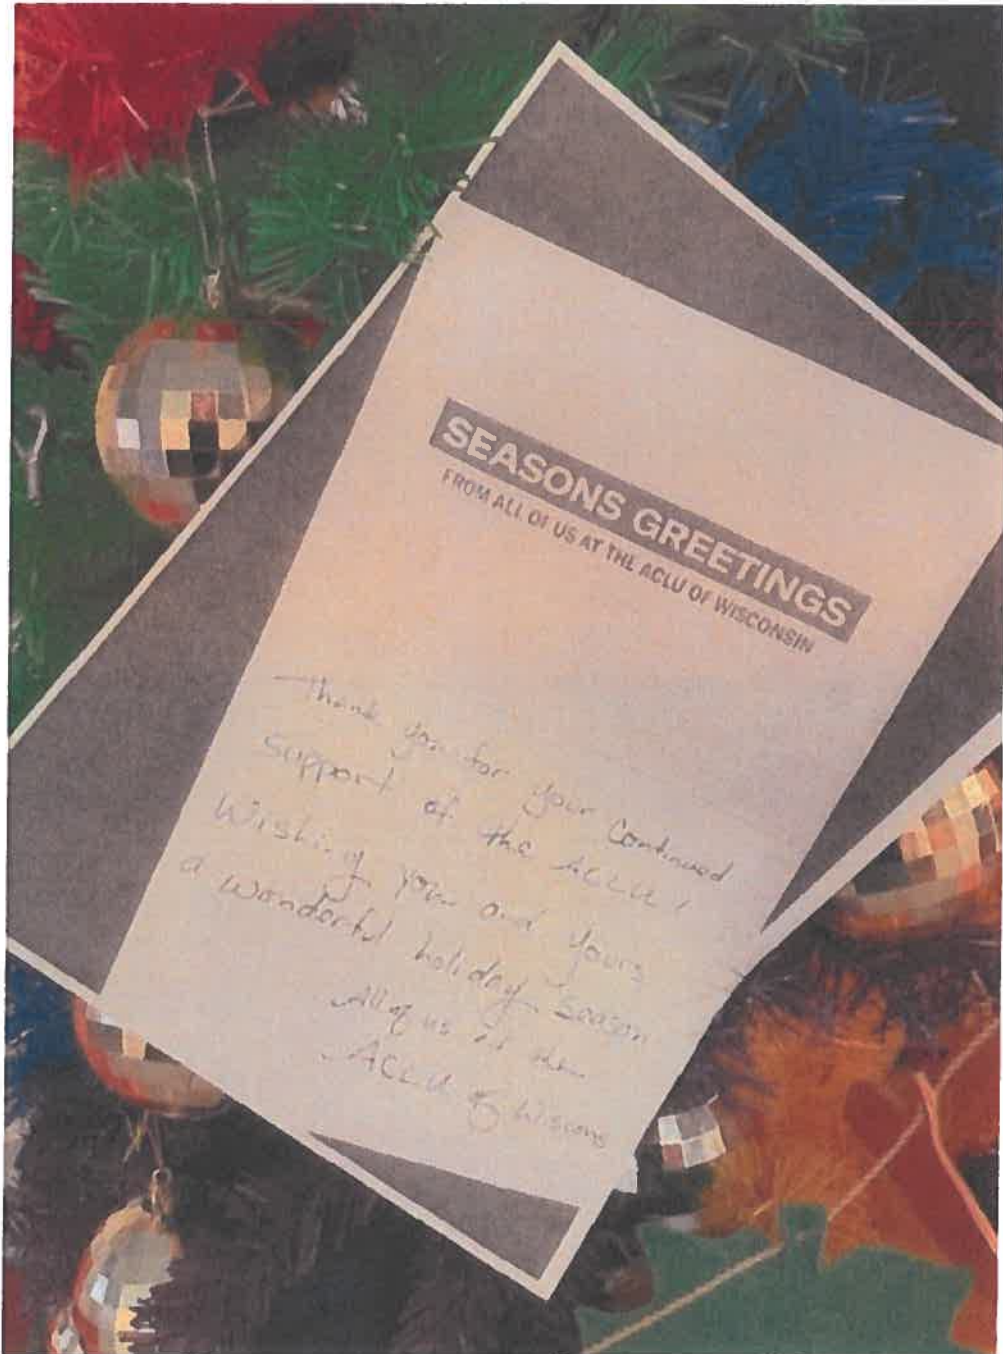 SEASONS GREETINGS
FROM ALL OF US AT THE ACLU OF WISCONSIN
Thank you for your Continued
Support of the ACLU!
Wishing you and yours
a wonderful holiday season
All of us at the
ACLU of Wiscons